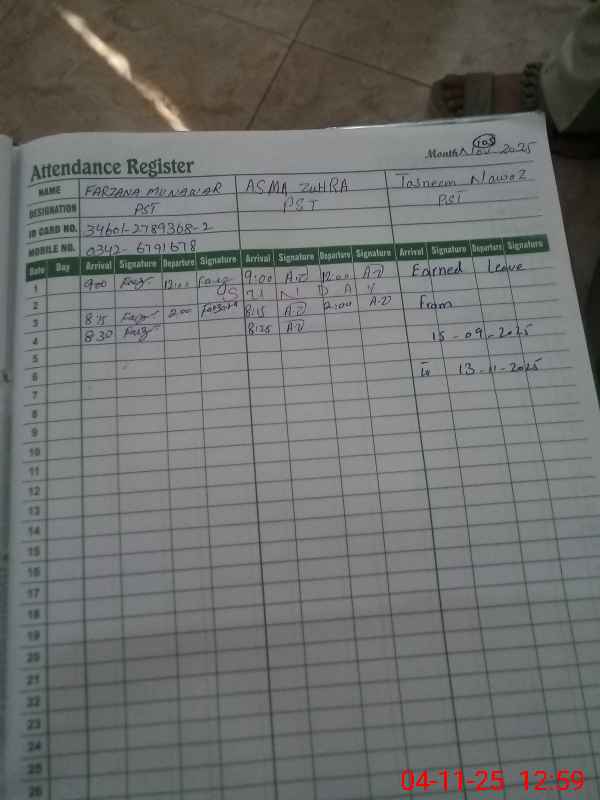 105
Attendance Register Month Nov 2025
NAME FARZANA MUNAWAR ASMA ZUHRA Tasneem Nawaz
DESIGNATION PST PST PST
ID CARD NO. 34601-2789368-2
MOBILE NO. 0342-6791678
Date Day Arrival Signature Departure Signature Arrival Signature Departure Signature Arrival Signature Departure Signature
1 9:00 12:00 9:00 A.D 12:00 A.D Earned Leave
2 S U N D A Y
3 8:15 2:00 8:15 A.D 2:00 A.D From
4 8:30 8:25 A.D 15-09-2025
5
6 to 13-11-2025
7
8
9
10
11
12
13
14
15
16
17
18
19
20
21
22
23
24
25
26
04-11-25 12:59